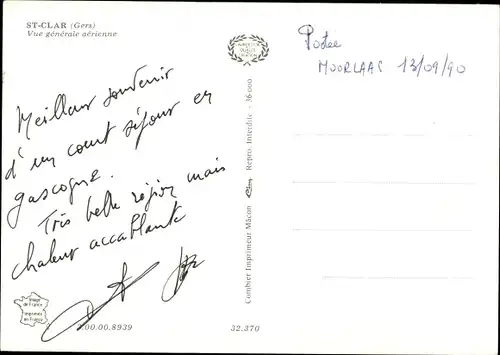 ST-CLAR (Gers)
Vue générale aérienne
Meilleur souvenir
d'un court séjour en
gascogne.
Très belle région mais
chaleur accablante
Postée
MOORLAAS 13/09/90
Combier Imprimeur Mâcon Repro. Interdite - 36 000
Image
de France
Imprimée
en France
200.00.8939
32.370